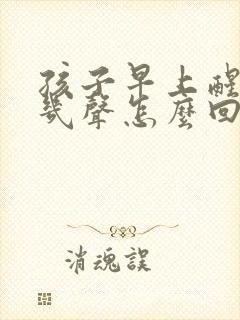 孩子早上醒
幾聲怎麼回
消魂誤